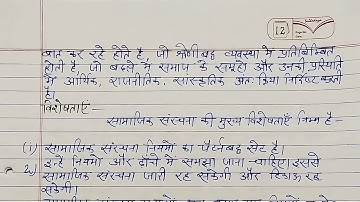 12
बात कर रहे होते है, जो श्रेणीबद्ध व्यवस्था मे प्रतिबिम्बित
होती है, जो बदले मे समाज के समूहो और उनकी प्रस्थिति
मे आर्थिक, राजनीतिक, सांस्कृतिक अतः क्रिया निर्दिष्ट करती
है।
विशेषताएँ-
सामाजिक संरचना की मुख्य विशेषताएँ निम्न है -
(1) सामाजिक संरचना नियमो का पैटर्नबद्ध सेट है।
2) इन्हे नियमो और ढाँचे मे समझा जाना चाहिए। इससे
सामाजिक संरचना जारी रह सकेगी और टिकाऊ रह
सकेगी।